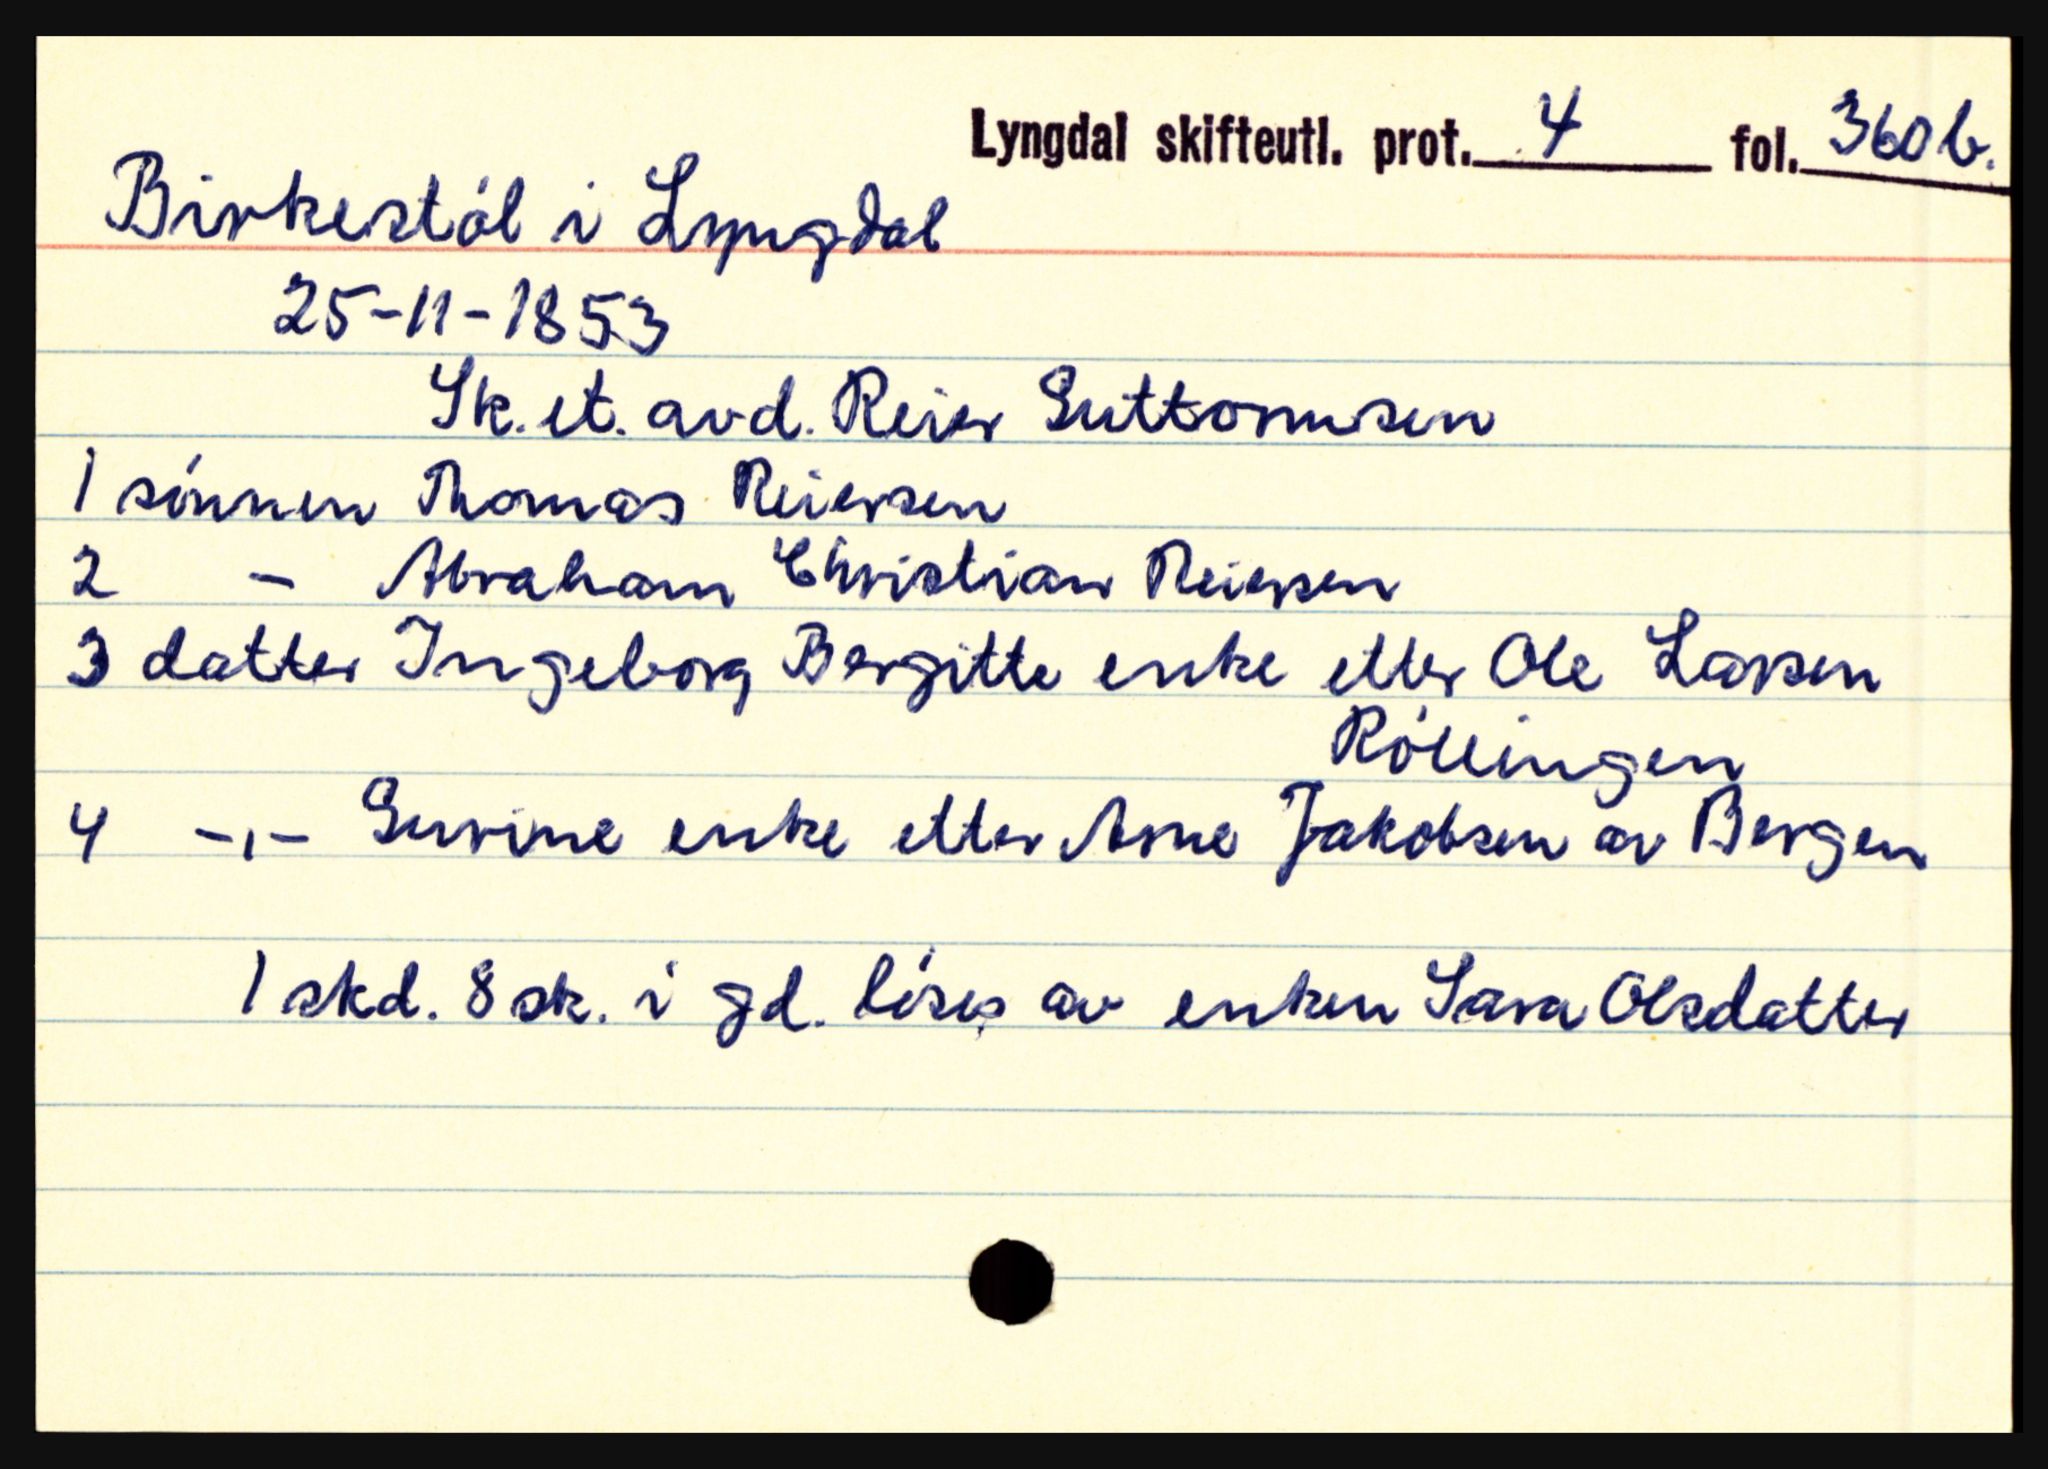 Lyngdal skifteutl. prot. 4 fol. 360b.
Birkestól i Lyngdal
25-11-1853
Sk. et. avd. Reier Guttormsen
1 sónnen Thomas Reiersen
2 - Abraham Christian Reiersen
3 datter Ingeborg Bergitte enke etter Ole Larsen
Róllingen
4 -,- Gurine enke etter Arne Jakobsen av Bergen
1 skd. 8 sk. i gd. lóses av enken Sara Olsdatter